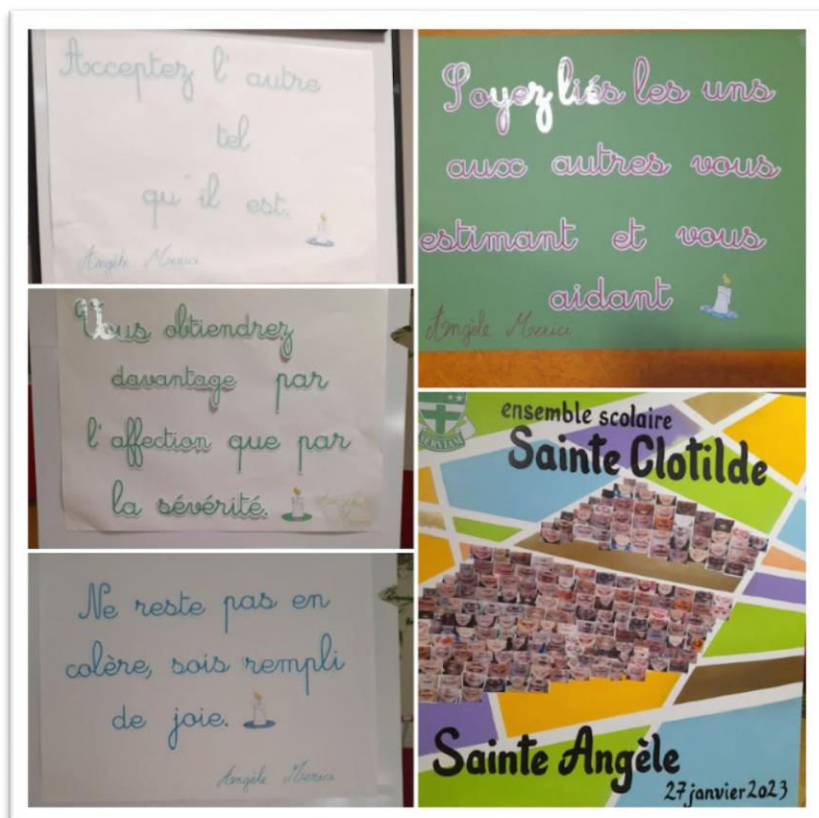 Acceptez l'autre
tel
qu'il est.
Angèle Merici
Vous obtiendrez
davantage par
l'affection que par
la sévérité.
Angèle
Merici
Ne reste pas en
colère, sois rempli
de joie.
Angèle Merici
Soyez liés les uns
aux autres vous
estimant et vous
aidant
Angèle Merici
SERVIAM
ensemble scolaire
Sainte Clotilde
Sainte Angèle
27 janvier 2023